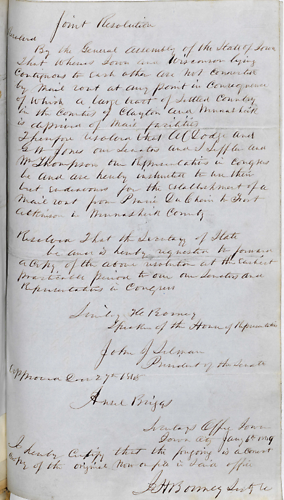 Joint Resolution
Resolved
By the General Assembly of the State of Iowa
That Whereas Iowa and Wisconsin lying
Contiguous to Each other are not connected
by Mail rout at any point in Consequence
of Which a large tract of Settled Country
in the Counties of Clayton and Winnishiek
is deprived of Mail facilities
Therefore Resolved that A C Dodge and
G W Jones our Senators and S Leffler and
Wm Thompson our Representatives in Congress
be and are hereby instructed to use their
best endeavours for the establishment of a
Mail rout from Prarie Du Chein to Fort
Atkinson in Winnishiek County
Resolved That the Secretary of State
be and is hereby requested to furnish
a Copy of the above resolution at the Earliest
practicable period to our Senators and
Representatives in Congress
Smiley H Bonney
Speaker of the House of Representatives
John J Selman
President of the Senate
Approved Dec 27th 1848
Ansel Briggs
Secretarys Office Iowa
Iowa City Jany 6th 1849
I hereby Certify that the foregoing is a correct
Copy of the original Now on file in Said office
J H Bonney Secty